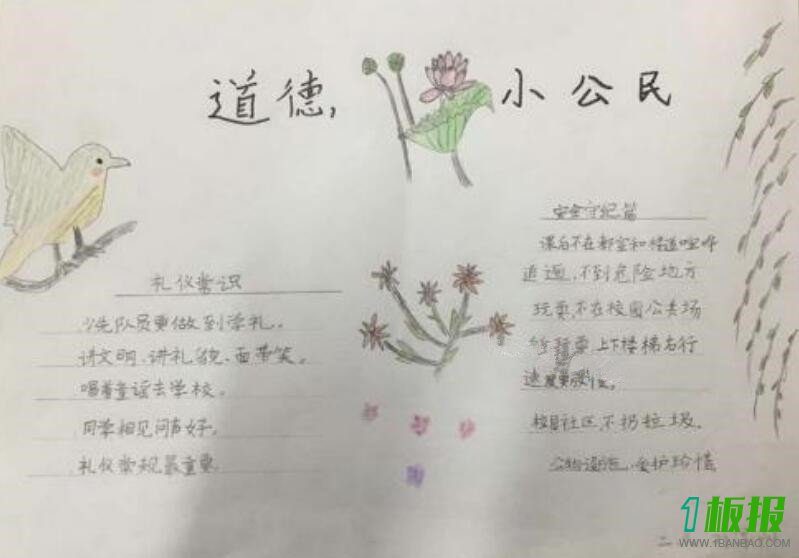 道德, 小公民
礼仪常识
少先队员要做到学礼。
讲文明、讲礼貌、面带笑。
唱着童谣去学校。
同学相见问声好。
礼仪常规最重要
安全守纪篇
课后不在教室和楼道喧哗
追逐，不到危险地方
玩耍，不在校园公共场
玩耍，上下楼梯右行
速度要慢。
校园社区，不扔垃圾。
公物设施，爱护珍惜
1板报
WWW.1BANBAO.COM
二